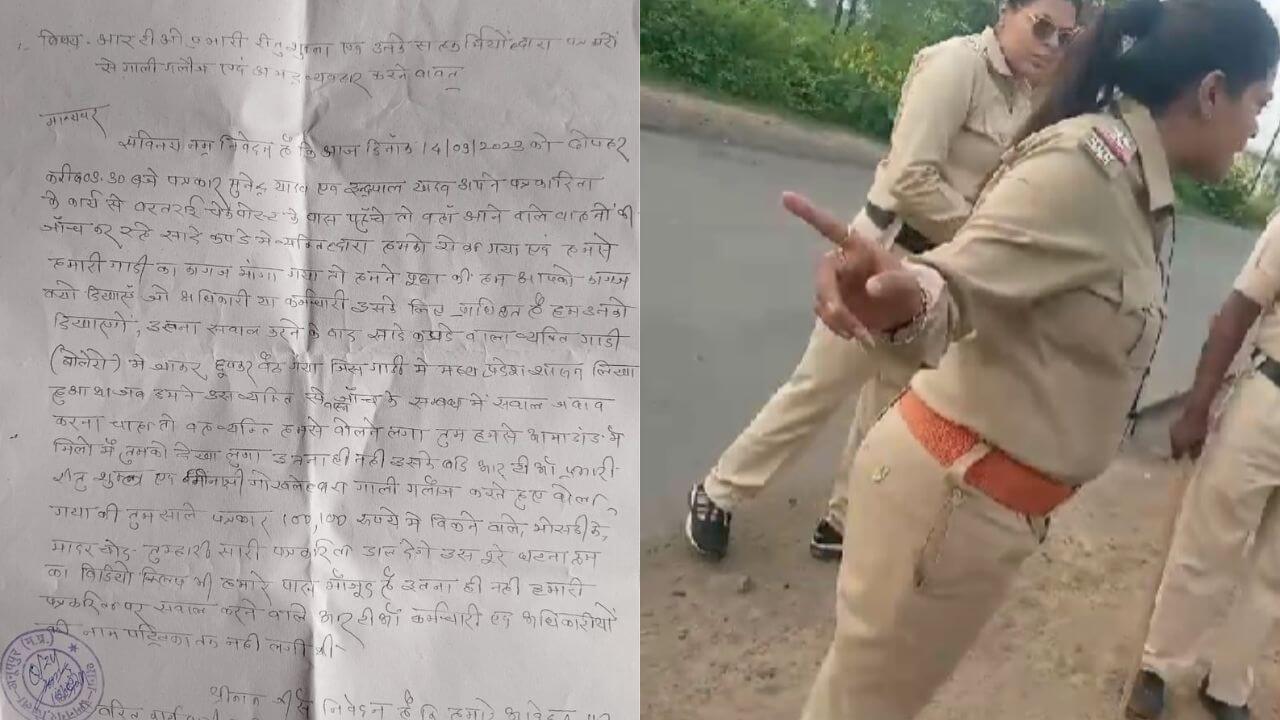 विषय- आर टी ओ प्रभारी रीतु शुक्ला एवं उनके सहकर्मियों द्वारा पत्रकारों
से गाली गलौज एवं अभद्र व्यवहार करने वावत्
मान्यवर
सविनय नम्र निवेदन है कि आज दिनाँक 14/09/2022 को दोपहर
करीब 03:30 बजे पत्रकार मुनेन्द्र यादव एवं इन्द्रपाल यादव अपने पत्रकारिता
के कार्य से वरतराई चेकपोस्ट के पास पहुँचे तो वहाँ आने वाले वाहनों की
जाँच कर रहे सादे कपडे मे व्यक्ति द्वारा हमको रोका गया एवं हमसे
हमारी गाडी का कागज मांगा गया तो हमने पूछा की हम आपको कागज
क्यो दिखाएँ जो अधिकारी या कर्मचारी उसके लिए अधिकृत है हम उनको
दिखाएगें, इतना सवाल करने के बाद सादे कपडे वाला व्यक्ति गाडी
(बोलेरो) मे जाकर छुपकर बैठ गया जिस गाडी मे मध्य प्रदेश शासन लिखा
हुआ था जब हमने उस व्यक्ति से जाँच के सम्बन्ध में सवाल जवाब
करना चाहा तो वह व्यक्ति हमसे बोलने लगा तुम हमसे आमाडांड में
मिलो मैं तुमको देखा लुगा इतना ही नही उसके बाद आर टी ओ प्रभारी
रीतु शुक्ला एवं मीनाक्षी गोखले द्वारा गाली गलौज करते हुए बोला
गया की तुम साले पत्रकार 100,100 रूपये मे बिकने वाले, भोसडी के,
मादर चोद- तुम्हारी सारी पत्रकारिता डाल देंगे उस पूरे घटना क्रम
का विडियो क्लिप भी हमारे पास मौजूद है इतना ही नही हमारी
पत्रकारिता पर सवाल करने वाले आर टी ओ कर्मचारी एवं अधिकारीयों
की नाम पट्टिका तक नही लगी थी-
श्रीमान से निवेदन है कि हमारे आवेदन पर